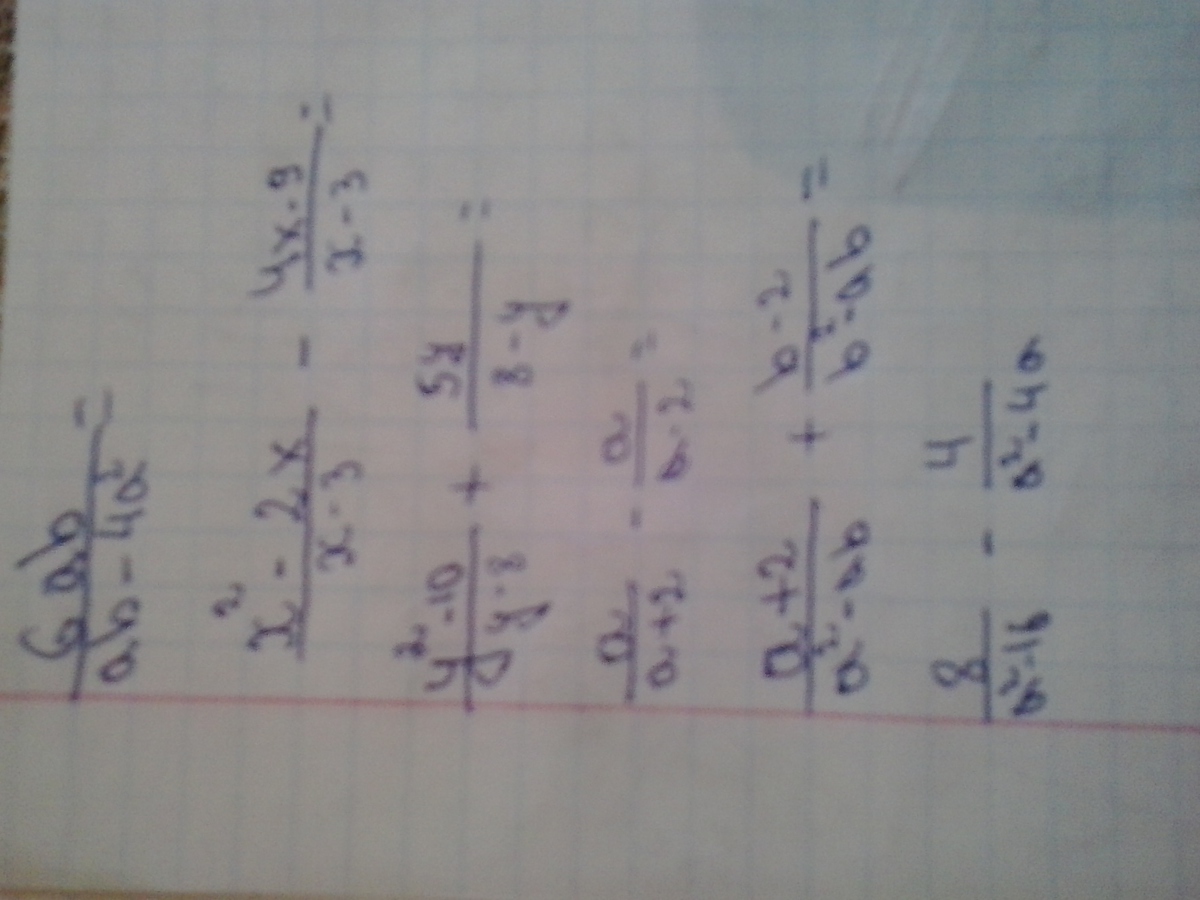 6ab/(ab - 4a²) =
(x² - 2x)/(x - 3) - (4x - 9)/(x - 3) =
(y² - 10)/(y - 8) + 5y/(8 - y) =
a/(a + 2) - a/(a - 2) =
(a + 2)/(a² - ab) + (b - 2)/(b² - ab) =
8/(a² - 16) - 4/(a² - 4a)